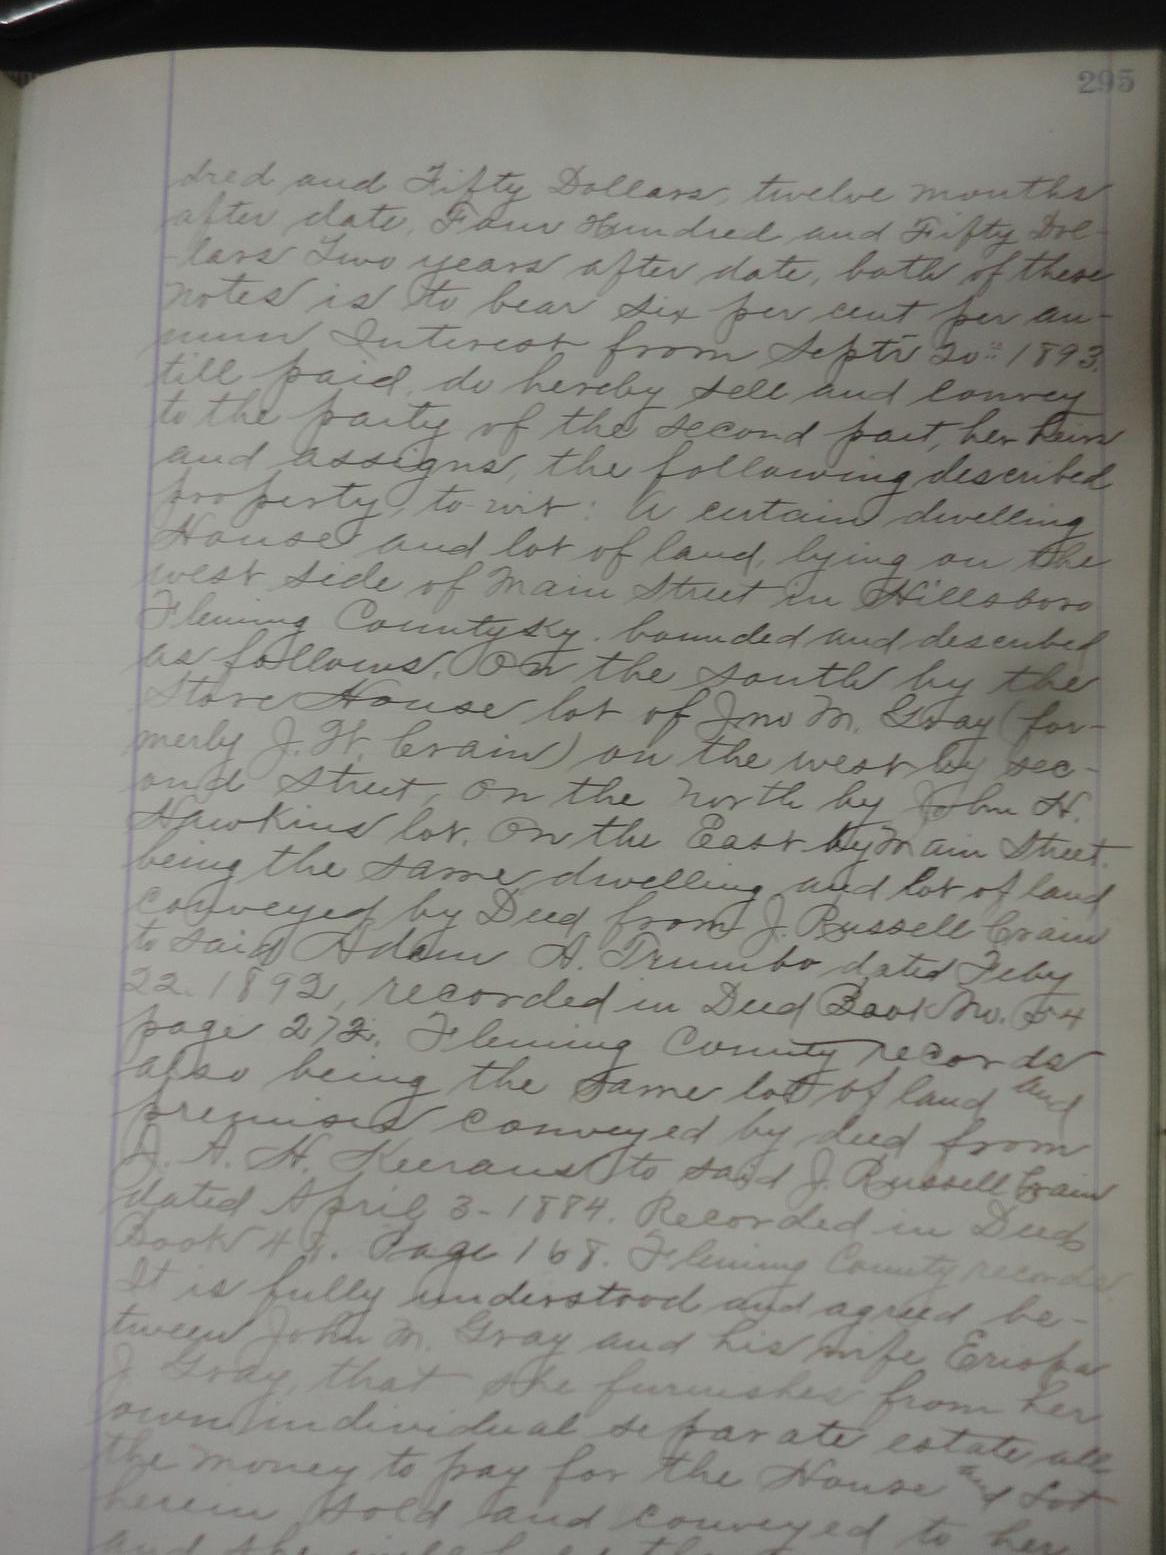 295
dred and Fifty Dollars, twelve months
after date, Four Hundred and Fifty Dol-
-lars Two years after date, both of these
notes is to bear six per cent per an-
num Interest from Septr 20th 1893.
till paid, do hereby sell and convey
to the party of the second part, her heirs
and assigns, the following described
property, to wit: A certain dwelling
House and lot of land, lying on the
west side of Main Street in Hillsboro
Fleming County Ky. bounded and described
as follows. On the south by the
Store House lot of Jno M. Gray (for-
merly J. W. Crain) on the west by sec-
ond Street, On the North by John H.
Hawkins lot. On the East by Main Street.
being the same dwelling and lot of land
conveyed by Deed from J. Russell Crain
to said Adam H. Trumbo dated Feby
22. 1892, recorded in Deed Book No. 54
page 272. Fleming County records
also being the same lot of land and
premises conveyed by deed from
J. A. H. Keerans to said J. Russell Crain
dated April 3-1884. Recorded in Deed
Book Page 168. Fleming County records
It is fully understood and agreed be-
tween John M. Gray and his wife
J Gray, that she furnishes from her
own individual separate estate all
the money to pay for the House and Lot
herein sold and conveyed to her
and she